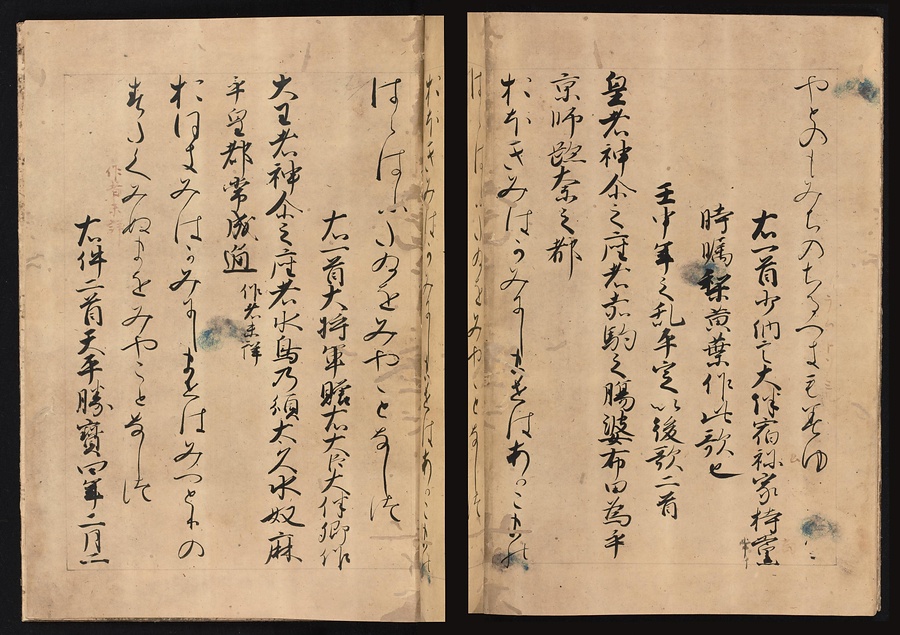 やとのもみちのちる
右一首少納言大伴宿祢家持當
時矚梨黄葉作此歌也
壬申年之乱平定以後歌二首
皇者神尓之座者赤駒之腸婆布田為乎
京師跡奈之都
おほきみはかみにしませはあかこまの
はらはふたゐをみやことなしつ
右一首大将軍贈右大臣大伴卿作
大王者神尓之座者水鳥乃須太久水奴麻
乎皇都常成通 作者未詳
おほきみはかみにしませはみつとりの
すたくみぬまをみやことなしつ
右件二首天平勝寶四年二月二